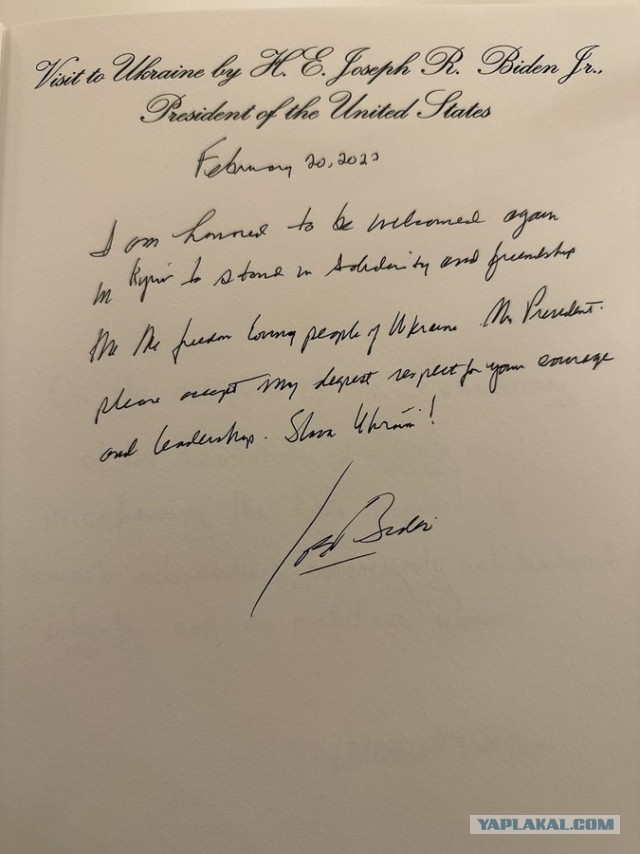 Visit to Ukraine by H. E. Joseph R. Biden Jr.,
President of the United States
February 20, 2023
I am honored to be welcomed again
in Kyiv to stand in solidarity and friendship
with the freedom loving people of Ukraine. Mr. President.
please accept my deepest respect for your courage
and leadership. Slava Ukraini!
Joe Biden
YAPLAKAL.COM